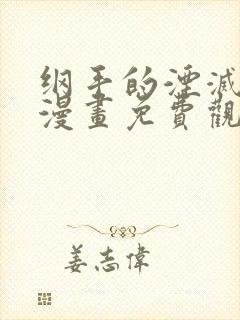 纲手的湮滅
漫畫免費觀
姜志偉